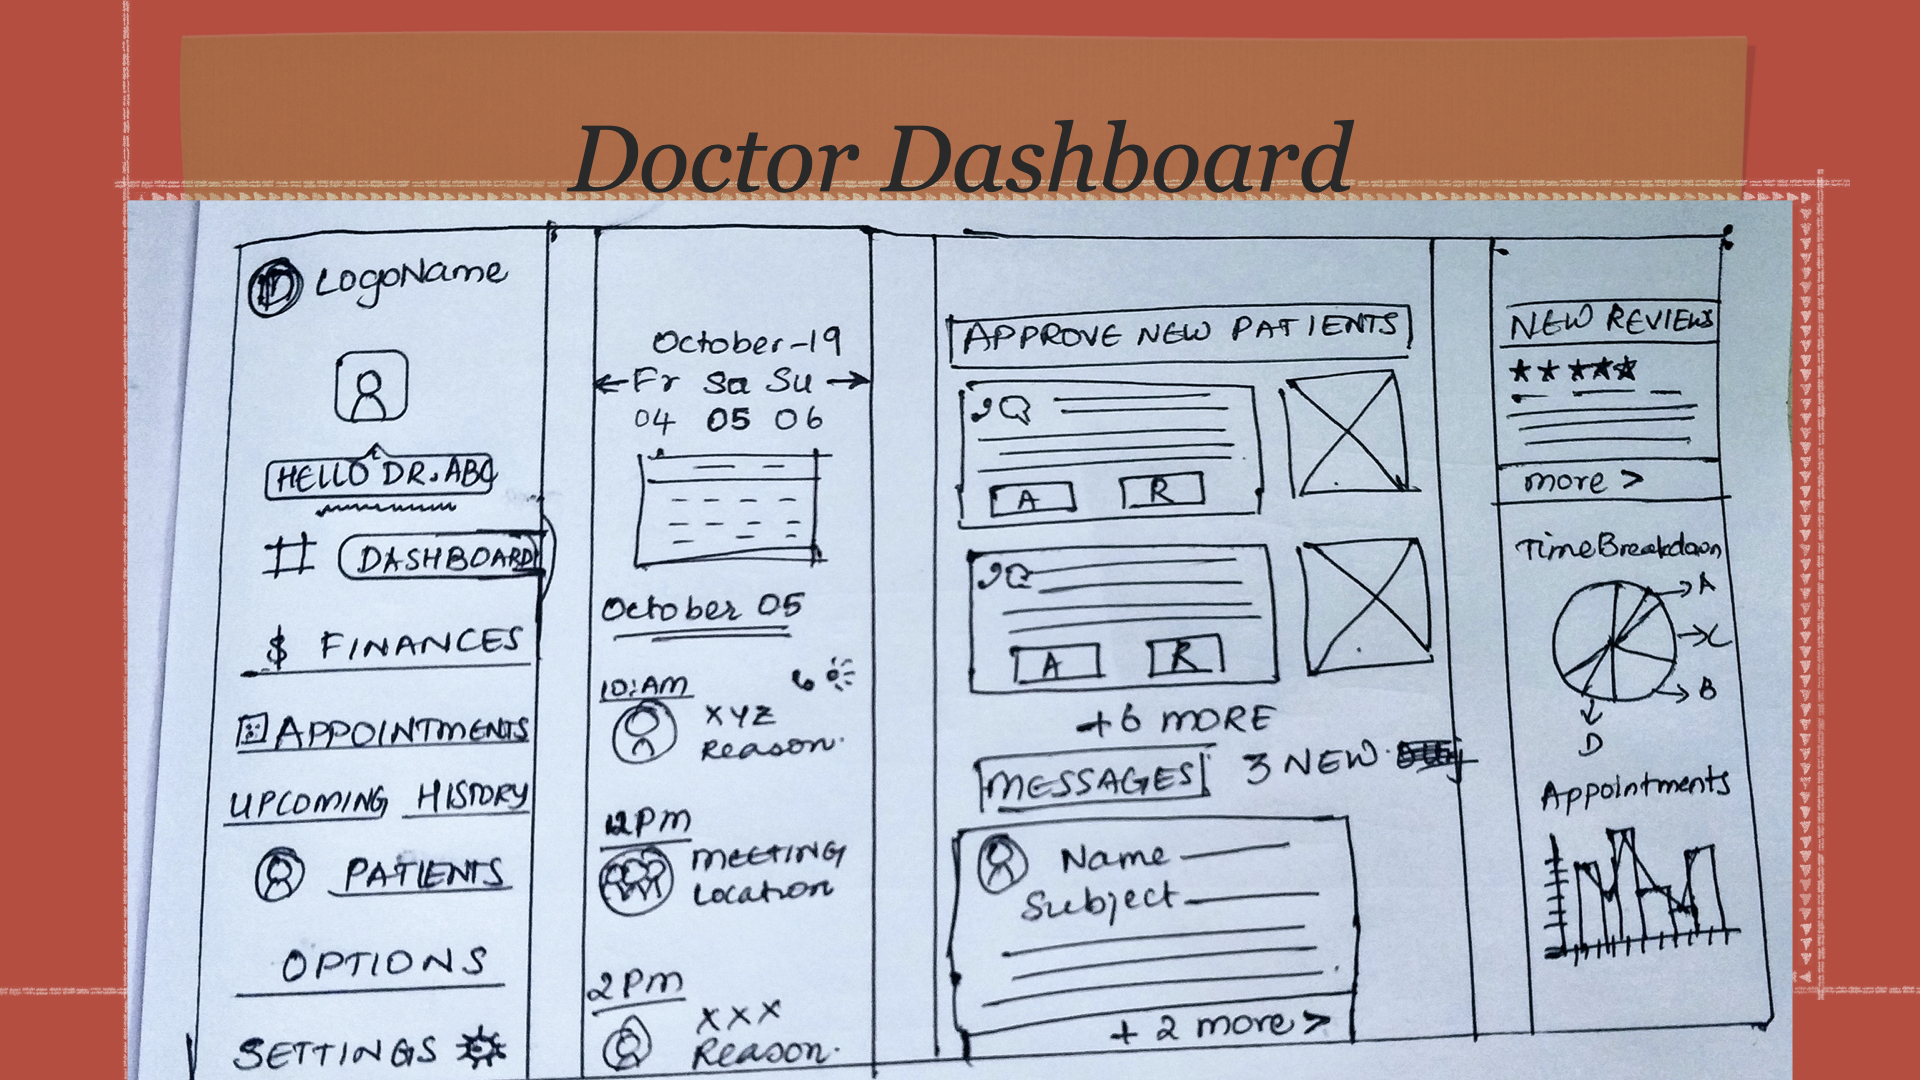 Doctor Dashboard
LogoName
HELLO DR. ABC
DASHBOARD
$ FINANCES
APPOINTMENTS
UPCOMING HISTORY
PATIENTS
OPTIONS
SETTINGS
October-19
Fr Sa Su
04 05 06
October 05
10:AM
XYZ
Reason.
12PM
MEETING
Location
2PM
XXX
Reason.
APPROVE NEW PATIENTS
A R
A R
+6 MORE
MESSAGES 3 NEW
Name
Subject
+ 2 more >
NEW REVIEWS
more >
Time Breakdown
A
B
D
Appointments